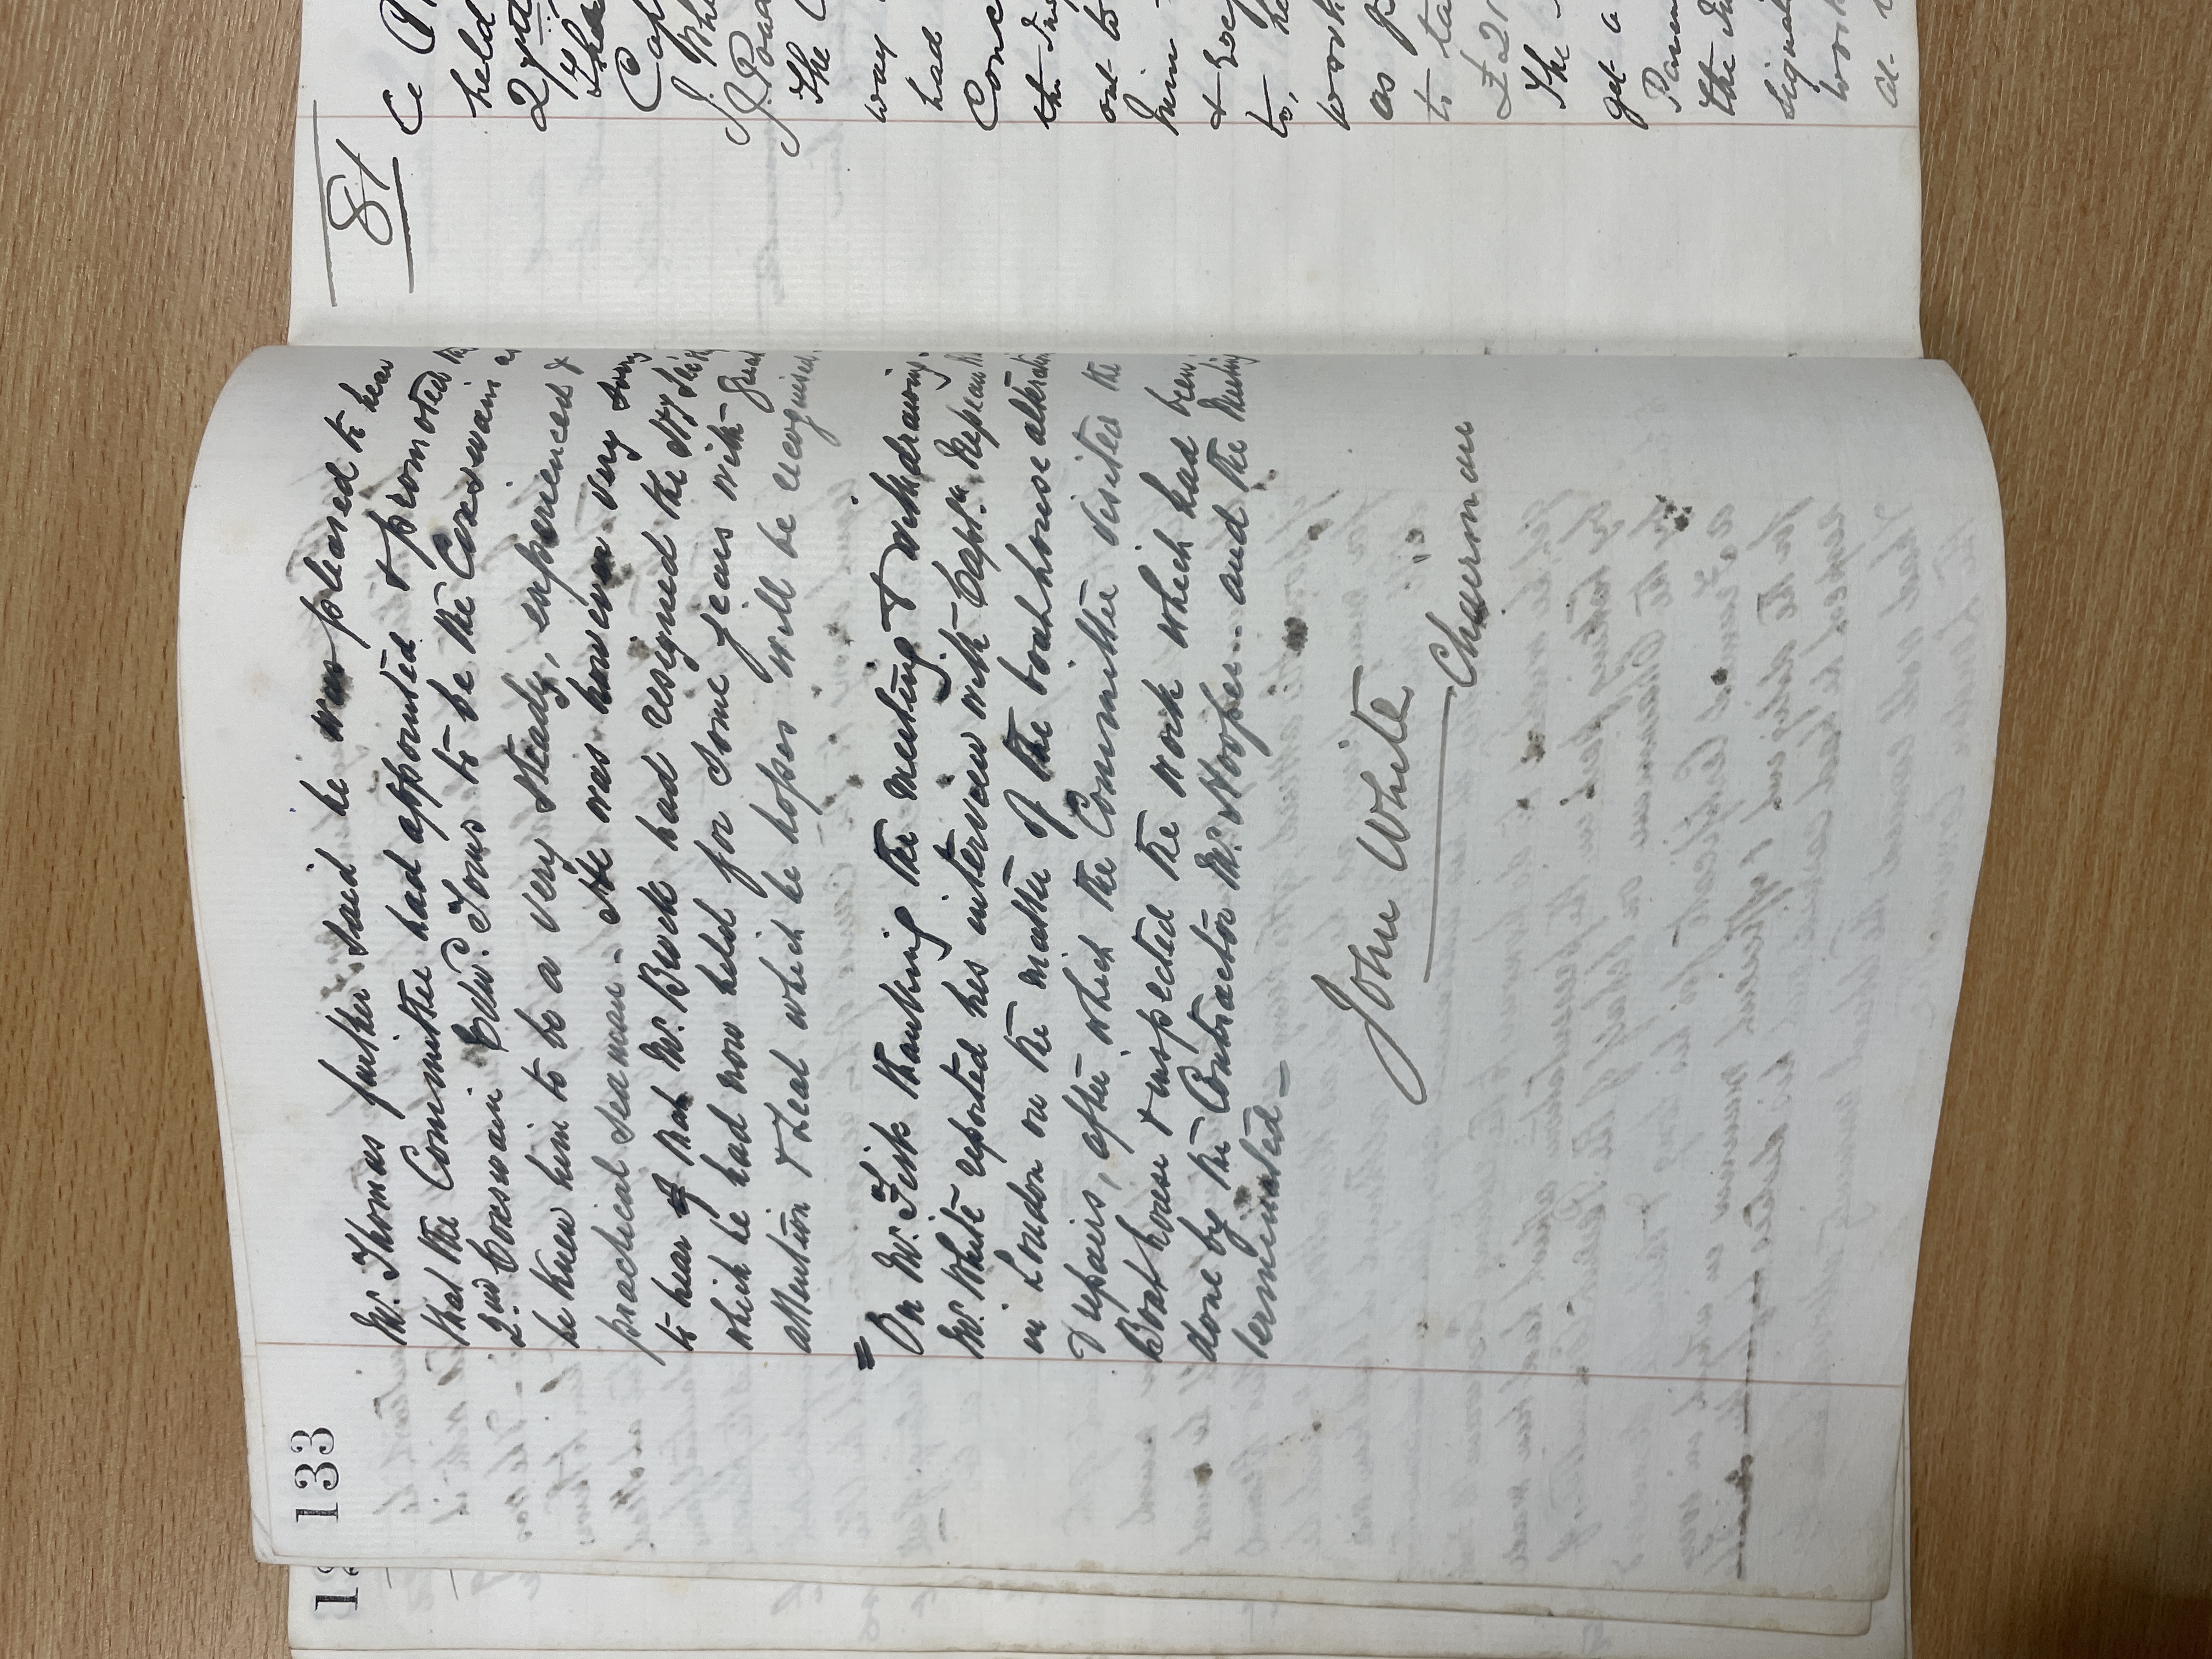 133
Mr. Thomas further said he was pleased to hear
that the Committee had appointed & promoted the
2nd Coxeswain Edwd. Toms to be the Coxeswain as
he knew him to be a very steady, experienced &
practical seaman - He was however very sorry
to hear of that Mr. Beck had resigned the
which he had now held for some years with great
attention & zeal which he hopes will be recognised.
= On Mr. Fisk thanking the meeting & withdrawing.
Mr. White reported his interview with Captn. Nepean
in London on the matter of the boathouse alterations
& repairs, after which the Committee visited the
Boathouse & inspected the work which had been
done by the Contractor Mr. Hooper - and the Meeting
terminated -
John White
Chairman
12
81
held
27th
The
Cap
J. Whe
J. Poa
The C
way
had
Conc
the In
out to
him
& Loc
to, he
work
as p
to ta
£21
The
get a
Parem
the In
signat
work
at